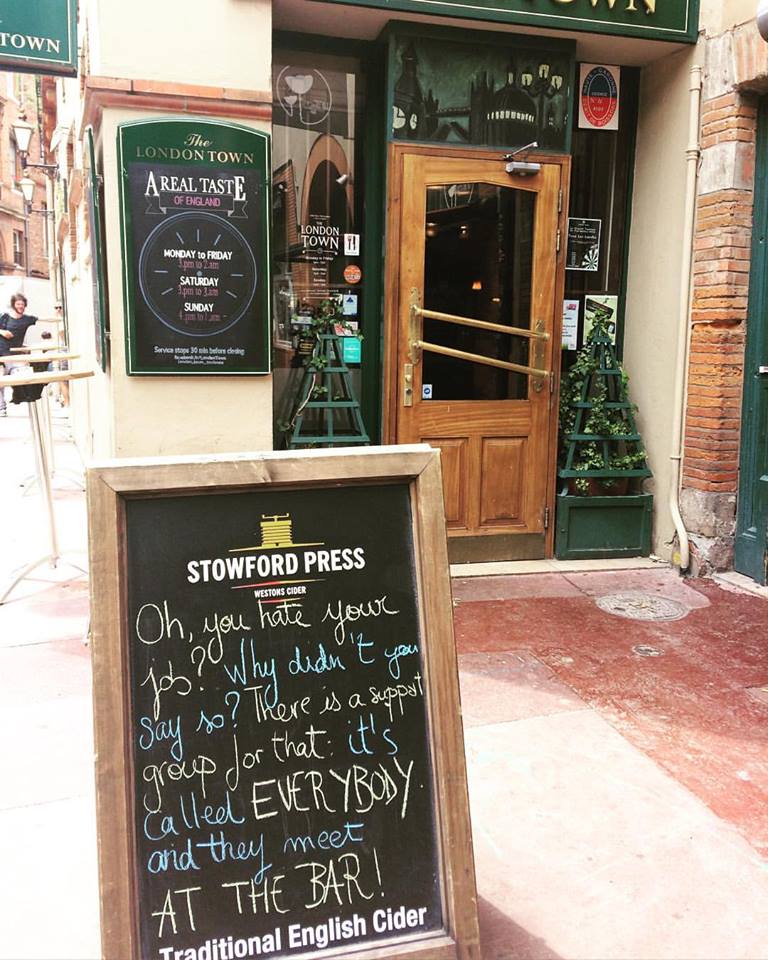 TOWN
TOWN
The
LONDON TOWN
A REAL TASTE
OF ENGLAND
MONDAY to FRIDAY
3.pm to 2.am
SATURDAY
3.pm to 3.am
SUNDAY
4.pm to 1.am
Service stops 30 min before closing
THE
LONDON
TOWN
STOWFORD PRESS
WESTONS CIDER
Oh, you hate your
job? Why didn't you
say so? There is a support
group for that: it's
called EVERYBODY.
and they meet
AT THE BAR!
Traditional English Cider